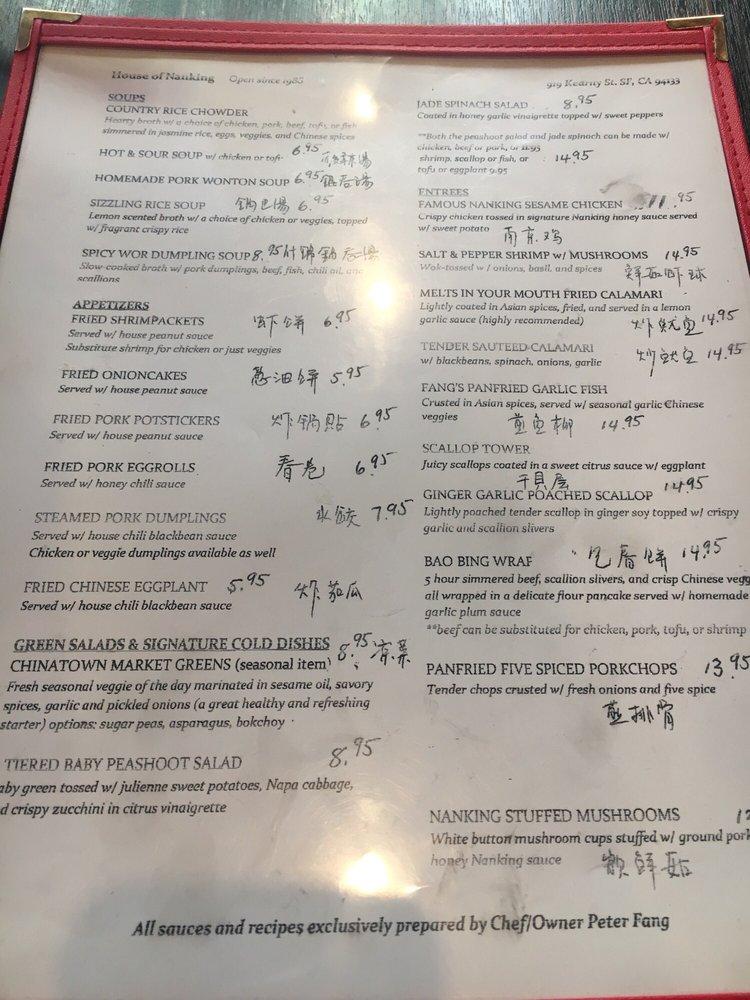 House of Nanking Open since 1988
919 Kearny St. SF, CA 94133
SOUPS
COUNTRY RICE CHOWDER
Hearty broth w/ a choice of chicken, pork, beef, tofu, or fish
simmered in jasmine rice, eggs, veggies, and Chinese spices
HOT & SOUR SOUP w/ chicken or tofu 6.95
HOMEMADE PORK WONTON SOUP 6.95
SIZZLING RICE SOUP 鍋巴湯 6.95
Lemon scented broth w/ a choice of chicken or veggies, topped
w/ fragrant crispy rice
SPICY WOR DUMPLING SOUP 8.95
Slow-cooked broth w/ pork dumplings, beef, fish, chili oil, and
scallions
APPETIZERS
FRIED SHRIMPACKETS 虾餅 6.95
Served w/ house peanut sauce
Substitute shrimp for chicken or just veggies
FRIED ONIONCAKES 葱油餅 5.95
Served w/ house peanut sauce
FRIED PORK POTSTICKERS 炸锅貼 6.95
Served w/ house peanut sauce
FRIED PORK EGGROLLS 春卷 6.95
Served w/ honey chili sauce
STEAMED PORK DUMPLINGS 水餃 7.95
Served w/ house chili blackbean sauce
Chicken or veggie dumplings available as well
FRIED CHINESE EGGPLANT 5.95 炸茄瓜
Served w/ house chili blackbean sauce
GREEN SALADS & SIGNATURE COLD DISHES
CHINATOWN MARKET GREENS (seasonal item) 8.95 凉菜
Fresh seasonal veggie of the day marinated in sesame oil, savory
spices, garlic and pickled onions (a great healthy and refreshing
starter) options: sugar peas, asparagus, bokchoy
TIERED BABY PEASHOOT SALAD 8.95
aby green tossed w/ julienne sweet potatoes, Napa cabbage,
d crispy zucchini in citrus vinaigrette
JADE SPINACH SALAD 8.95
Coated in honey garlic vinaigrette topped w/ sweet peppers
**Both the peashoot salad and jade spinach can be made w/
chicken, beef or pork, or 11.95
shrimp, scallop or fish, or 14.95
tofu or eggplant 9.95
ENTREES
FAMOUS NANKING SESAME CHICKEN 11.95
Crispy chicken tossed in signature Nanking honey sauce served
w/ sweet potato 南京鸡
SALT & PEPPER SHRIMP w/ MUSHROOMS 14.95
Wok-tossed w/ onions, basil, and spices 鲜菇虾球
MELTS IN YOUR MOUTH FRIED CALAMARI
Lightly coated in Asian spices, fried, and served in a lemon
garlic sauce (highly recommended) 炸鱿鱼 14.95
TENDER SAUTEED CALAMARI
w/ blackbeans, spinach, onions, garlic 炒鱿鱼 14.95
FANG'S PANFRIED GARLIC FISH
Crusted in Asian spices, served w/ seasonal garlic Chinese
veggies 煎鱼柳 14.95
SCALLOP TOWER
Juicy scallops coated in a sweet citrus sauce w/ eggplant
干貝层 14.95
GINGER GARLIC POACHED SCALLOP
Lightly poached tender scallop in ginger soy topped w/ crispy
garlic and scallion slivers
BAO BING WRAP 14.95
5 hour simmered beef, scallion slivers, and crisp Chinese vegg
all wrapped in a delicate flour pancake served w/ homemade
garlic plum sauce
**beef can be substituted for chicken, pork, tofu, or shrimp
PANFRIED FIVE SPICED PORKCHOPS 13.95
Tender chops crusted w/ fresh onions and five spice
煎排骨
NANKING STUFFED MUSHROOMS
White button mushroom cups stuffed w/ ground pork
honey Nanking sauce
All sauces and recipes exclusively prepared by Chef/Owner Peter Fang